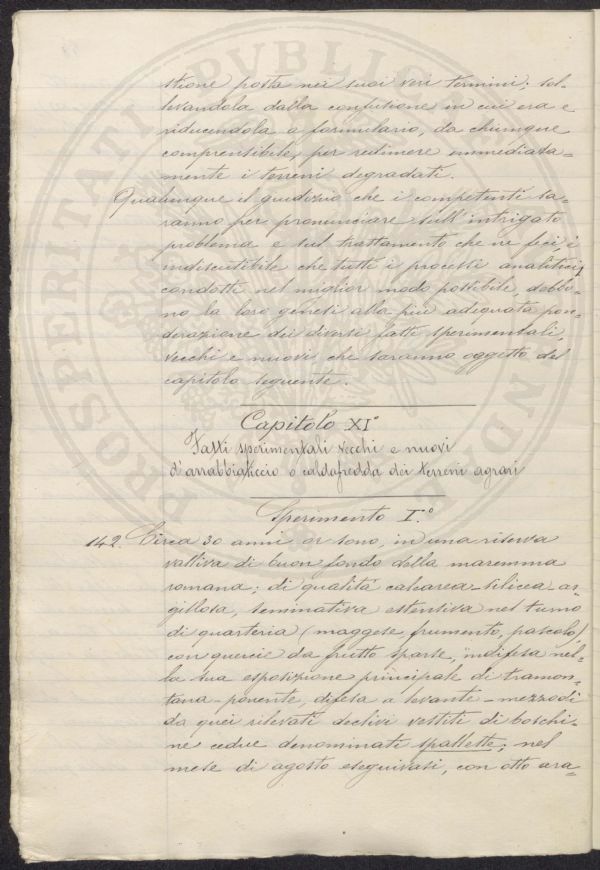 stione posta nei suoi veri termini; sol-
levandola dalla confusione in cui era e
riducendola a formulario, da chiunque
comprensibile, per redimere immediata-
mente i terreni degradati.
Qualunque il giudizio che i competenti sa-
ranno per pronunciare sull'intrigato
problema e sul trattamento che ne feci, è
indiscutibile che tutti i processi analitici,
condotti nel miglior modo possibile, debba-
no la loro genesi alla più adeguata pon-
derazione dei diversi fatti sperimentali,
vecchi e nuovi che saranno oggetto del
capitolo seguente.
Capitolo XI°
Fatti sperimentali vecchi e nuovi
d'arrabbiaticcio o caldafredda dei terreni agrari
Sperimento I.°
142. Circa 30 anni or sono, in una riserva
valliva di buon fondo della maremma
romana; di qualità calcarea-silicea-ar-
gillosa, seminativa estensiva nel turno
di quarteria (maggese, frumento, pascolo)
con quercie da frutto sparse, indifesa nel-
la sua esposizione principale di tramon-
tana-ponente, difesa a levante-mezzodì
da quei rilevati declivi vestiti di boschi-
ne cedue denominati spallette; nel
mese di agosto eseguivasi, con otto ara-
PROSPERITATI PVBLIC